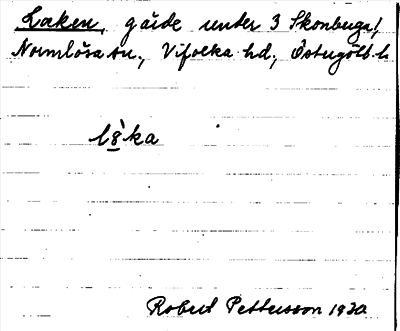 Laken, gärde under 3 Skonberga,
Normlösa sn., Vifolka hd, Östergötl. l.
l8̀ka
Robert Pettersson 1930